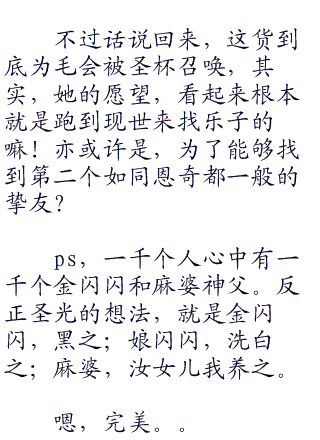 不过话说回来，这货到
底为毛会被圣杯召唤，其
实，她的愿望，看起来根本
就是跑到现世来找乐子的
嘛！亦或许是，为了能够找
到第二个如同恩奇都一般的
挚友？
ps，一千个人心中有一
千个金闪闪和麻婆神父。反
正圣光的想法，就是金闪
闪，黑之；娘闪闪，洗白
之；麻婆，汝女儿我养之。
嗯，完美。。